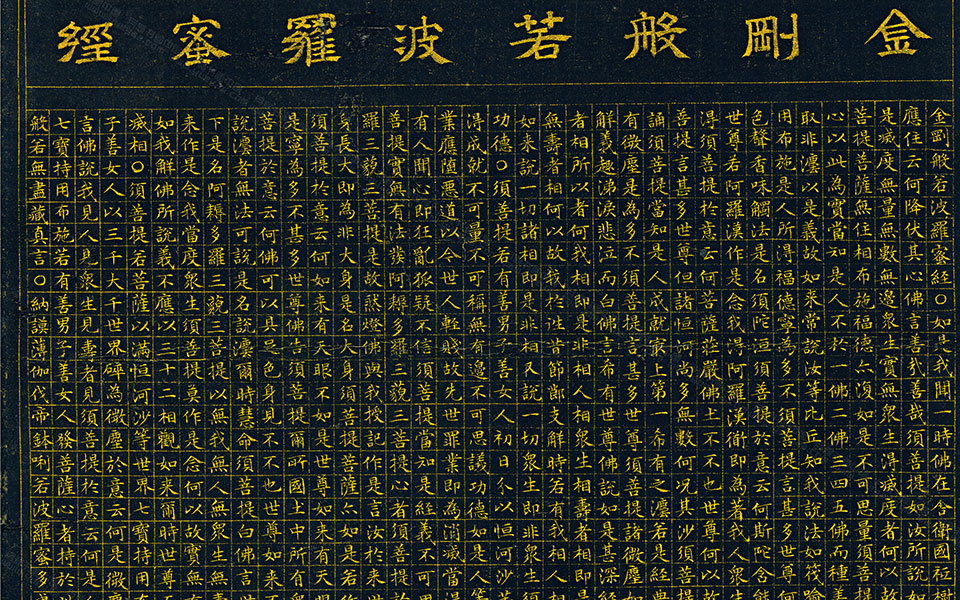 金剛般若波羅蜜經
金剛般若波羅蜜經○如是我聞一時佛在舍衛國祇樹
應住云何降伏其心佛言善哉善哉須菩提如汝所說如
是滅度無量無數無邊眾生實無眾生得滅度者何以故
菩提菩薩無住相布施福德亦復如是不可思量須菩
心以此為實當知是人不於一佛二佛三四五佛而種善
取非法以是義故如來常說汝等比丘知我說法如筏喻
用布施是人所得福德寧為多不須菩提言甚多世尊何
色聲香味觸法是名須陀洹須菩提於意云何斯陀含能
世尊若阿羅漢作是念我得阿羅漢衜即為著我人眾生
得須菩提於意云何菩薩莊嚴佛土不不也世尊何以故
菩提言甚多世尊但諸恒河尚多無數何況其沙須菩提
誦須菩提當知是人成就最上第一希有之法若是經典
有微塵是為多不須菩提言甚多世尊須菩提諸微塵如
解義趣涕淚悲泣而白佛言希有世尊佛說如是甚深經
者相所以者何我相即是非相人相眾生相壽者相即是
無壽者相何以故我於往昔節節支解時若有我相人相
如來說一切諸相即是非相又說一切眾生即非眾生須
功德○須菩提若有善男子善女人初日分以恒河沙等
得成就不可量不可稱無有邊不可思議功德如是人等
業應墮惡道以今世人輕賤故先世罪業即為消滅當得
有人聞心即狂亂狐疑不信須菩提當知是經義不可思
菩提實無有法發阿耨多羅三藐三菩提心者須菩提
羅三藐三菩提是故然燈佛與我授記作是言汝於來世
身長大即為非大身是名大身須菩提菩薩亦如是若作
須菩提於意云何如來有天眼不如是世尊如來有天眼
是寧為多不甚多世尊佛告須菩提爾所國土中所有眾
菩提於意云何佛可以具足色身見不不也世尊如來
說法者無法可說是名說法爾時慧命須菩提白佛言世
下是名阿耨多羅三藐三菩提以無我無人無眾生無壽
來作是念我當度眾生須菩提莫作是念何以故實無有
如我解佛所說義不應以三十二相觀如來爾時世尊
滅相○須菩提若菩薩以滿恒河沙等世界七寶持用布
子善女人以三千大千世界碎為微塵於意云何是微塵
言佛說我見人見眾生見壽者見須菩提於意云何是人
七寶持用布施若有善男子善女人發菩薩心者持於
般若無盡藏真言○納謨薄伽伐帝鉢唎若波羅蜜多